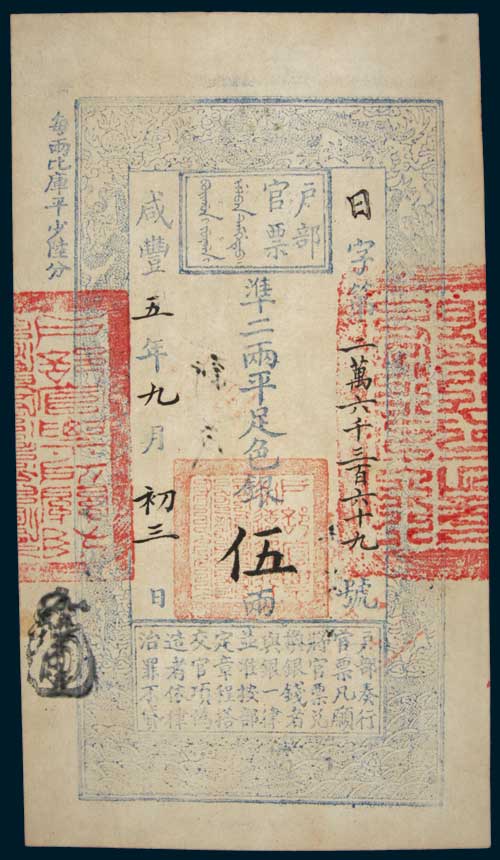 戶部
官票
日字第二萬六千三百六十九號
準二兩平足色銀伍兩
咸豐五年九月初三日
每兩比庫平少陸分
戶部奏行
官票凡願
將官票兌
換銀錢者
與銀一律
並准按部
定章程搭
交官項偽
造者依律
治罪不貸